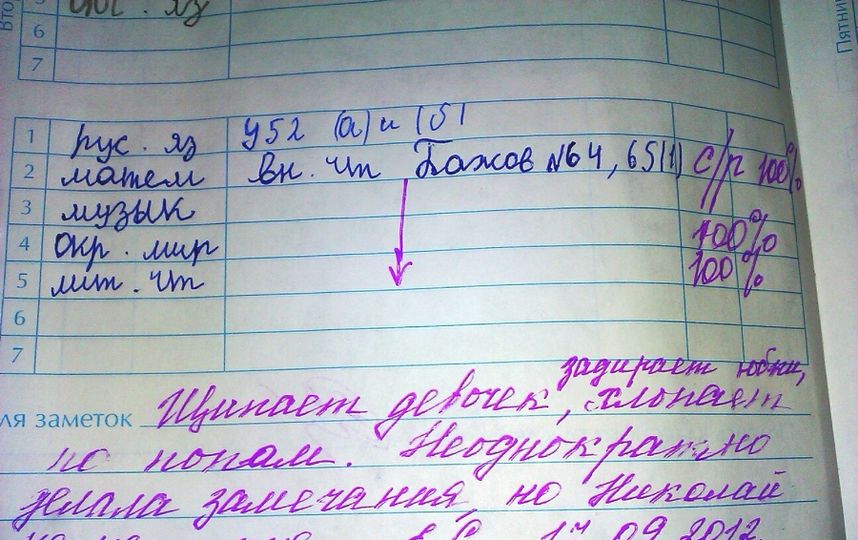 Вто
Пятни
6
7
1 рус. яз у52 (а) и 151
2 матем вн. чт Бажов №64, 65(1) с/р 100%
3 музык
4 окр. мир 100%
5 лит. чт 100%
6
7
задирает юбки,
ля заметок Щипает девочек, хлопает
по попам. Неоднократно
делала замечания, но Николай
17.09.2012.